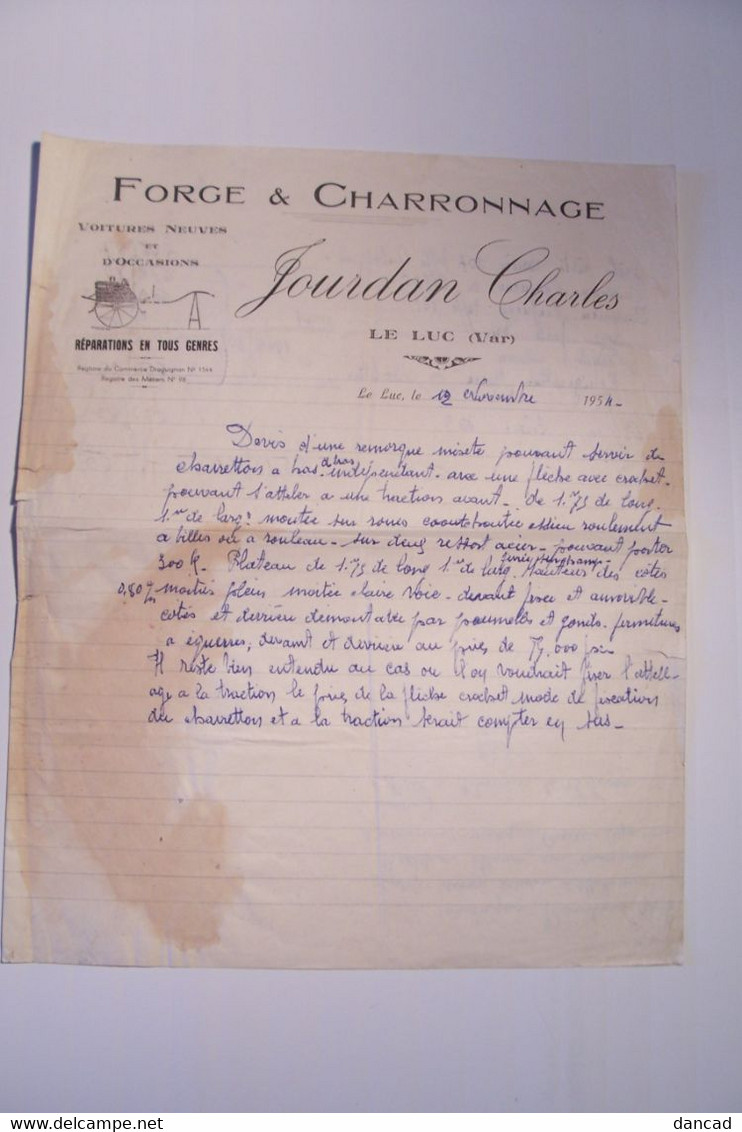 FORGE & CHARRONNAGE
VOITURES NEUVES
ET
D'OCCASIONS
RÉPARATIONS EN TOUS GENRES
Registre du Commerce Draguignan Nº 1564
Registre des Métiers Nº
Jourdan Charles
LE LUC (Var)
Le Luc, le 12 Novembre 1954-
Devis d'une remorque mixte pouvant servir de
charretton a bras indépendant- avec une flèche avec crochet-
pouvant l'atteler a une traction avant- de 1.m75 de long.
1.m de larg! montée sur roues caoutchoutée essieu roulement
a billes ou a rouleau- sur deux ressort acier- pouvant porter
300 K. Plateau de 1.m75 de long 1.m de larg. Hauteur des cotés
0,80 moitié plein moitié claire voie- devant fixe et ouvrible-
cotés et derrière démontable par paumelles et gonds. fermetures
a équerres, devant et derrière au prix de 75,000 frs
Il reste bien entendu au cas ou l'on voudrait fixer l'attel-
age a la traction le prix de la flèche crochet mode de fixation
du charretton et a la traction serait compter en sus-
delcampe.net
dancad